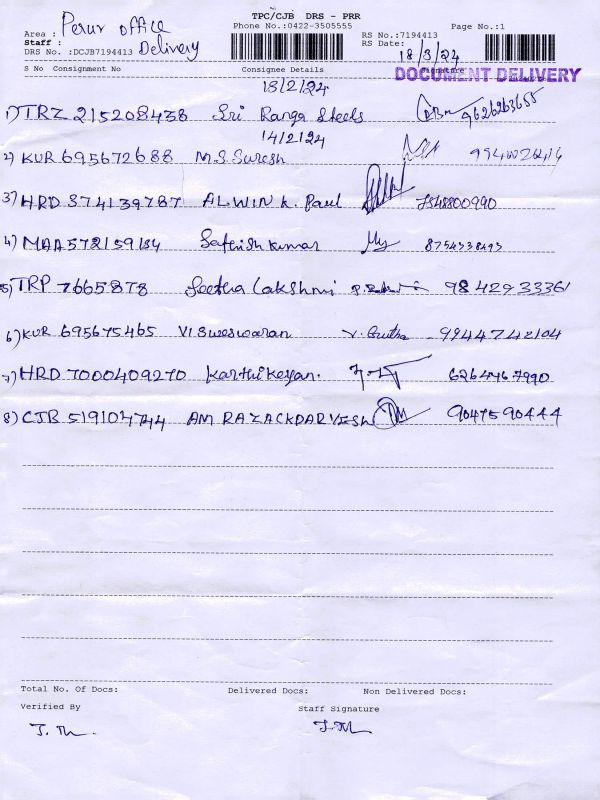 TPC/CJB DRS - PRR
Area : Perur office
Phone No.:0422-3505555
Page No.:1
Staff : Delivery
RS No.:7194413
DRS No. :DCJB7194413
RS Date: 18/3/24
S No Consignment No Consignee Details Signature
DOCUMENT DELIVERY
13/2/24
1) TRZ 215208438 Sri Ranga Steels 9626263655
14/2/24
2) KUR 695672688 M.S. Suresh
3) HRD 374139787 ALWIN K. Paul 7548800990
4) MAA 572159134 Sathish Kumar 8754338493
5) TRP 7665878 Seetha Lakshmi 9842933361
6) KUR 695675465 Visweswaran 9944742104
7) HRD 7000409270 Karthikeyan. 6264467990
8) CJB 519104744 AM RAZACKDARVESH 9047590444
Total No. Of Docs: Delivered Docs: Non Delivered Docs:
Verified By Staff Signature